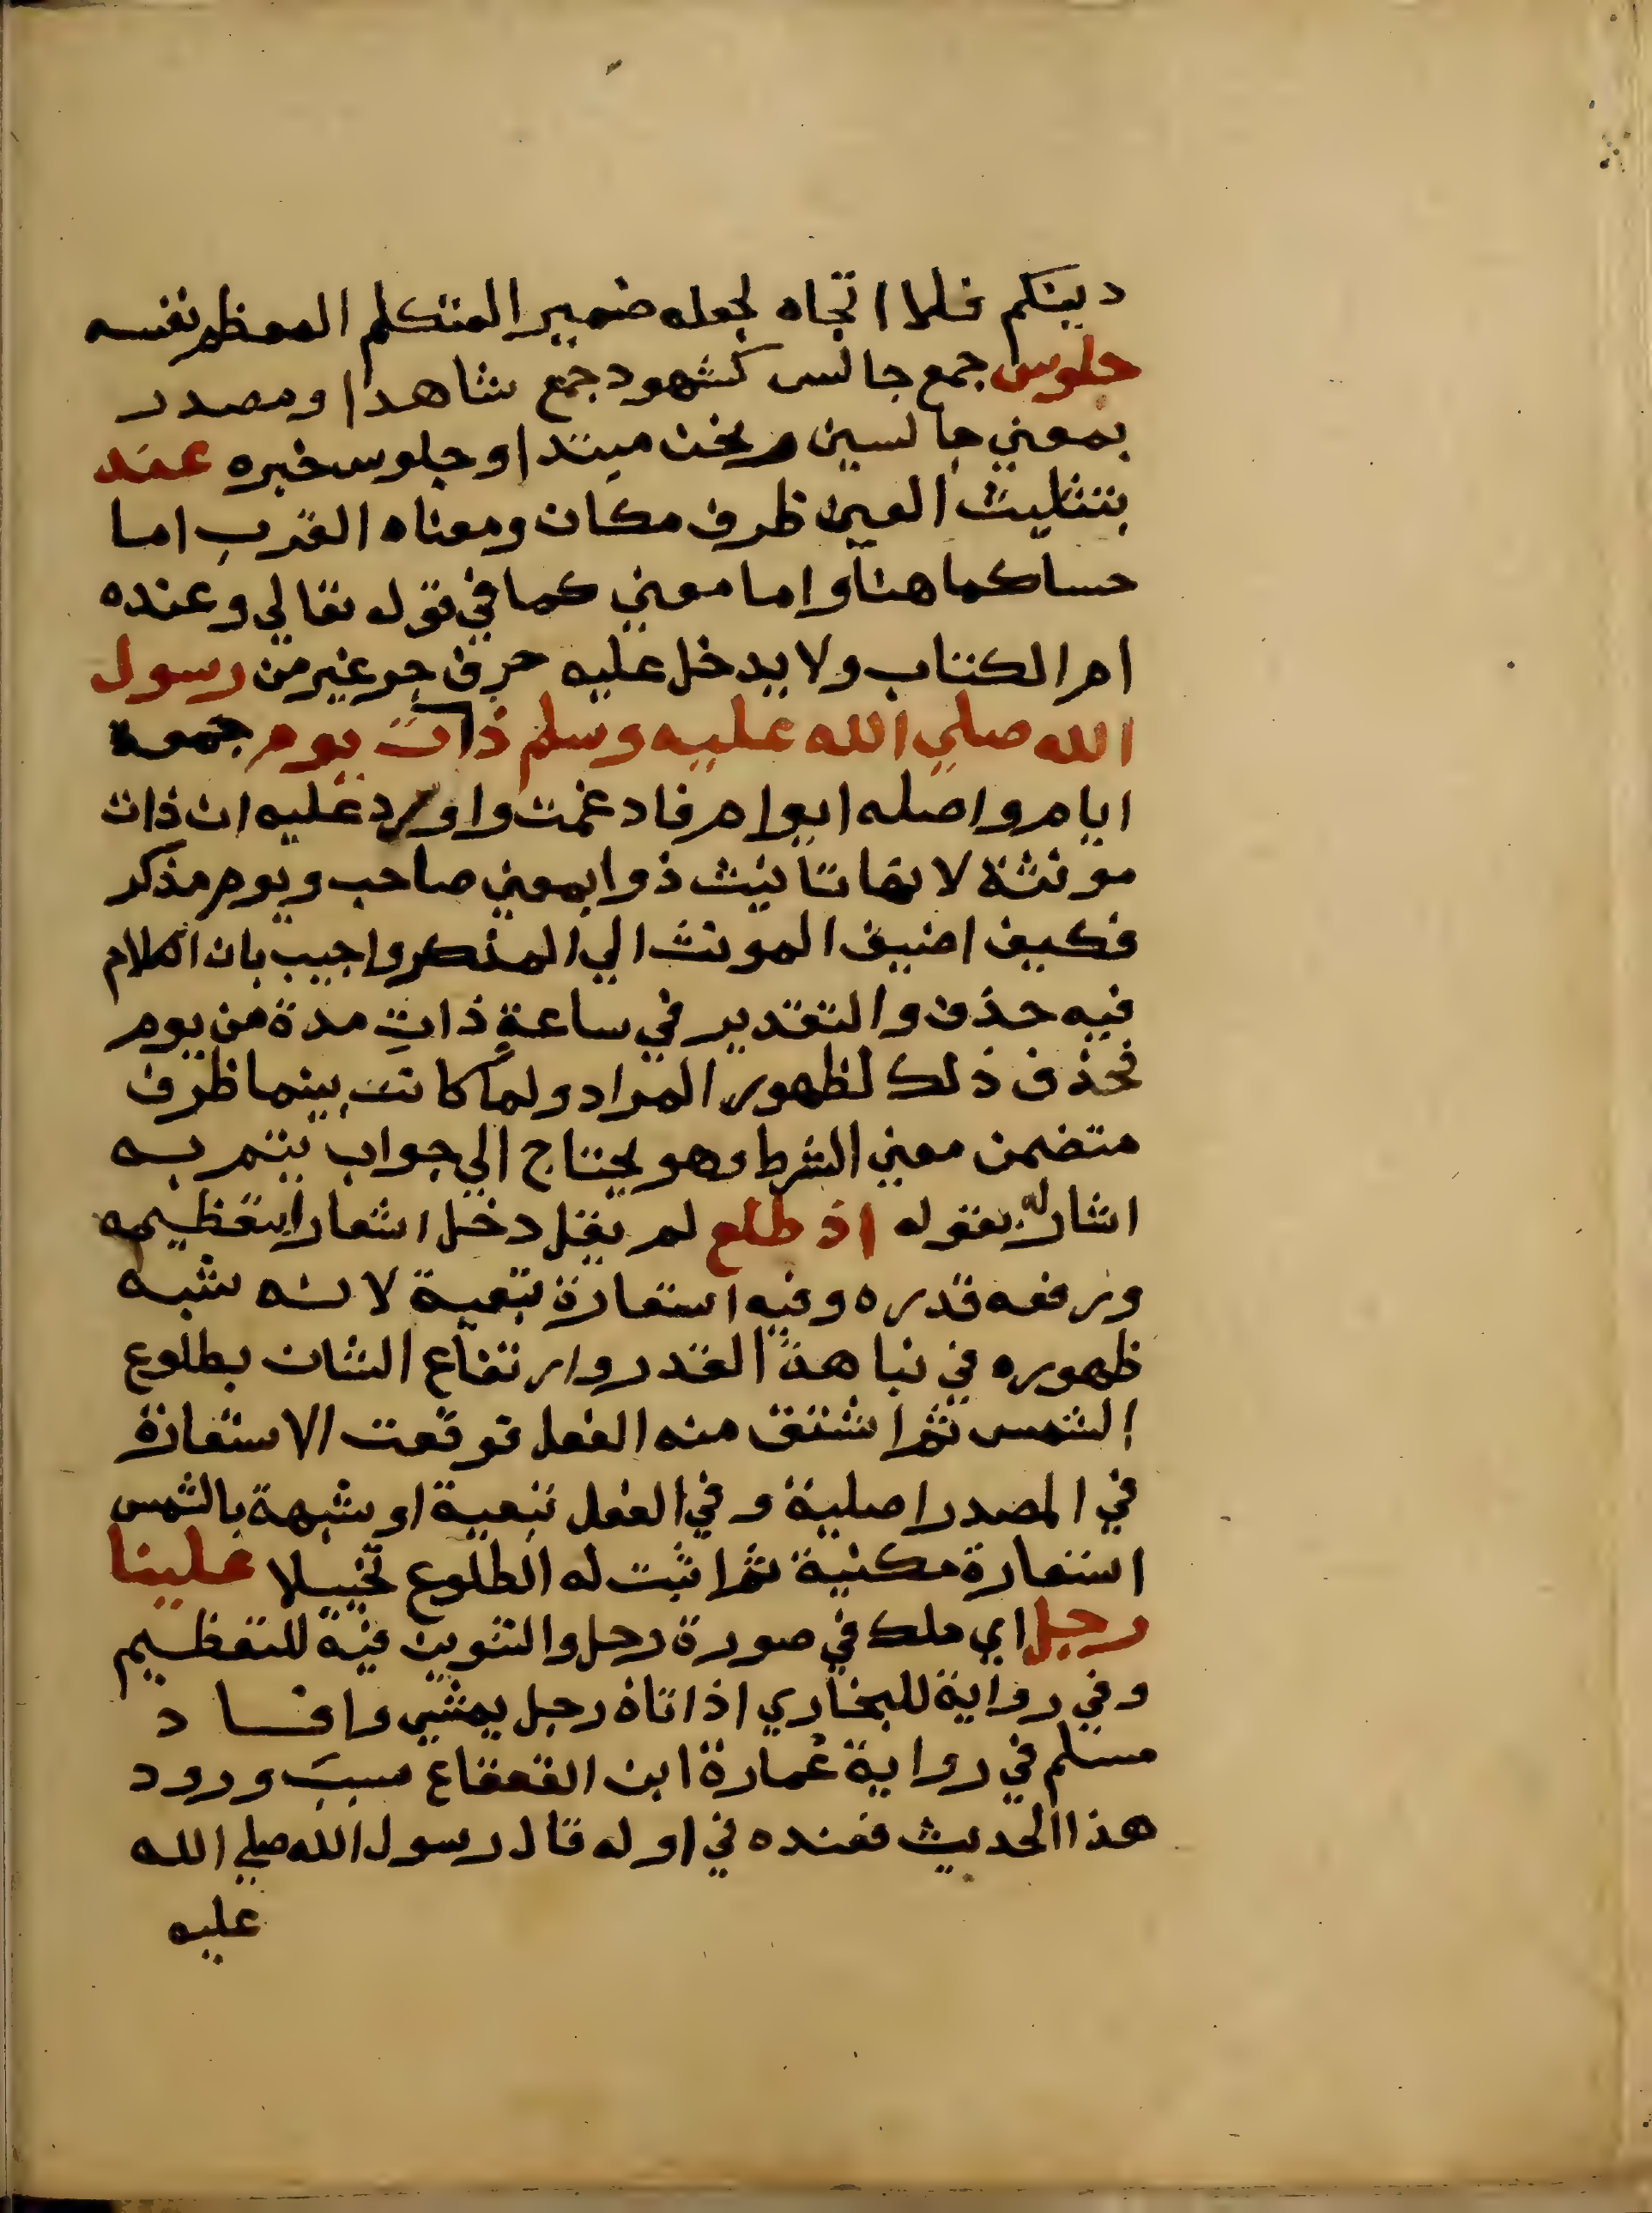 دينكم فلا اتجاه لجعله ضمير المتكلم المعظم نفسه
جلوس جمع جالس كشهود جمع شاهد او مصدر
بمعني جالسين ونحن مبتدا وجلوس خبره عند
بتثليث العين ظرف مكان ومعناه القرب اما
حسا كما هنا واما معني كما في قوله تعالي وعنده
ام الكتاب ولا يدخل عليه حرف جر غير من رسول
الله صلي الله عليه وسلم ذات يوم جمعه
ايام واصله ايوام فادغمت واورد عليه ان ذات
مونثة لانها تانيث ذوا بمعني صاحب ويوم مذكر
فكيف اضيف المونث الي المذكر واجيب بان الكلام
فيه حذف والتقدير في ساعةٍ ذاتِ مدة من يوم
فحذف ذلك لظهور المراد ولما كانت بينما ظرف
متضمن معني الشرط وهو يحتاج الي جواب يتم به
اشار له بقوله اذ طلع لم يقل دخل اشعارا بتعظيمه
ورفعه قدره وفيه استعارة تبعية لانه شبه
ظهوره في نباهة القدر وارتفاع الشان بطلوع
الشمس ثم اشتق منه الفعل فوقعت الاستعارة
في المصدر اصلية وفي الفعل تبعية او شبهة بالشمس
استعارة مكنية ثم اثبت له الطلوع تخييلا علينا
رجل اي ملك في صورة رجل والتنوين فيه للتعظيم
وفي رواية للبخاري اذ اتاه رجل يمشي وافاد
مسلم في رواية عمارة ابن القعقاع سبب ورود
هذا الحديث فعنده في اوله قال رسول الله صلي الله
عليه